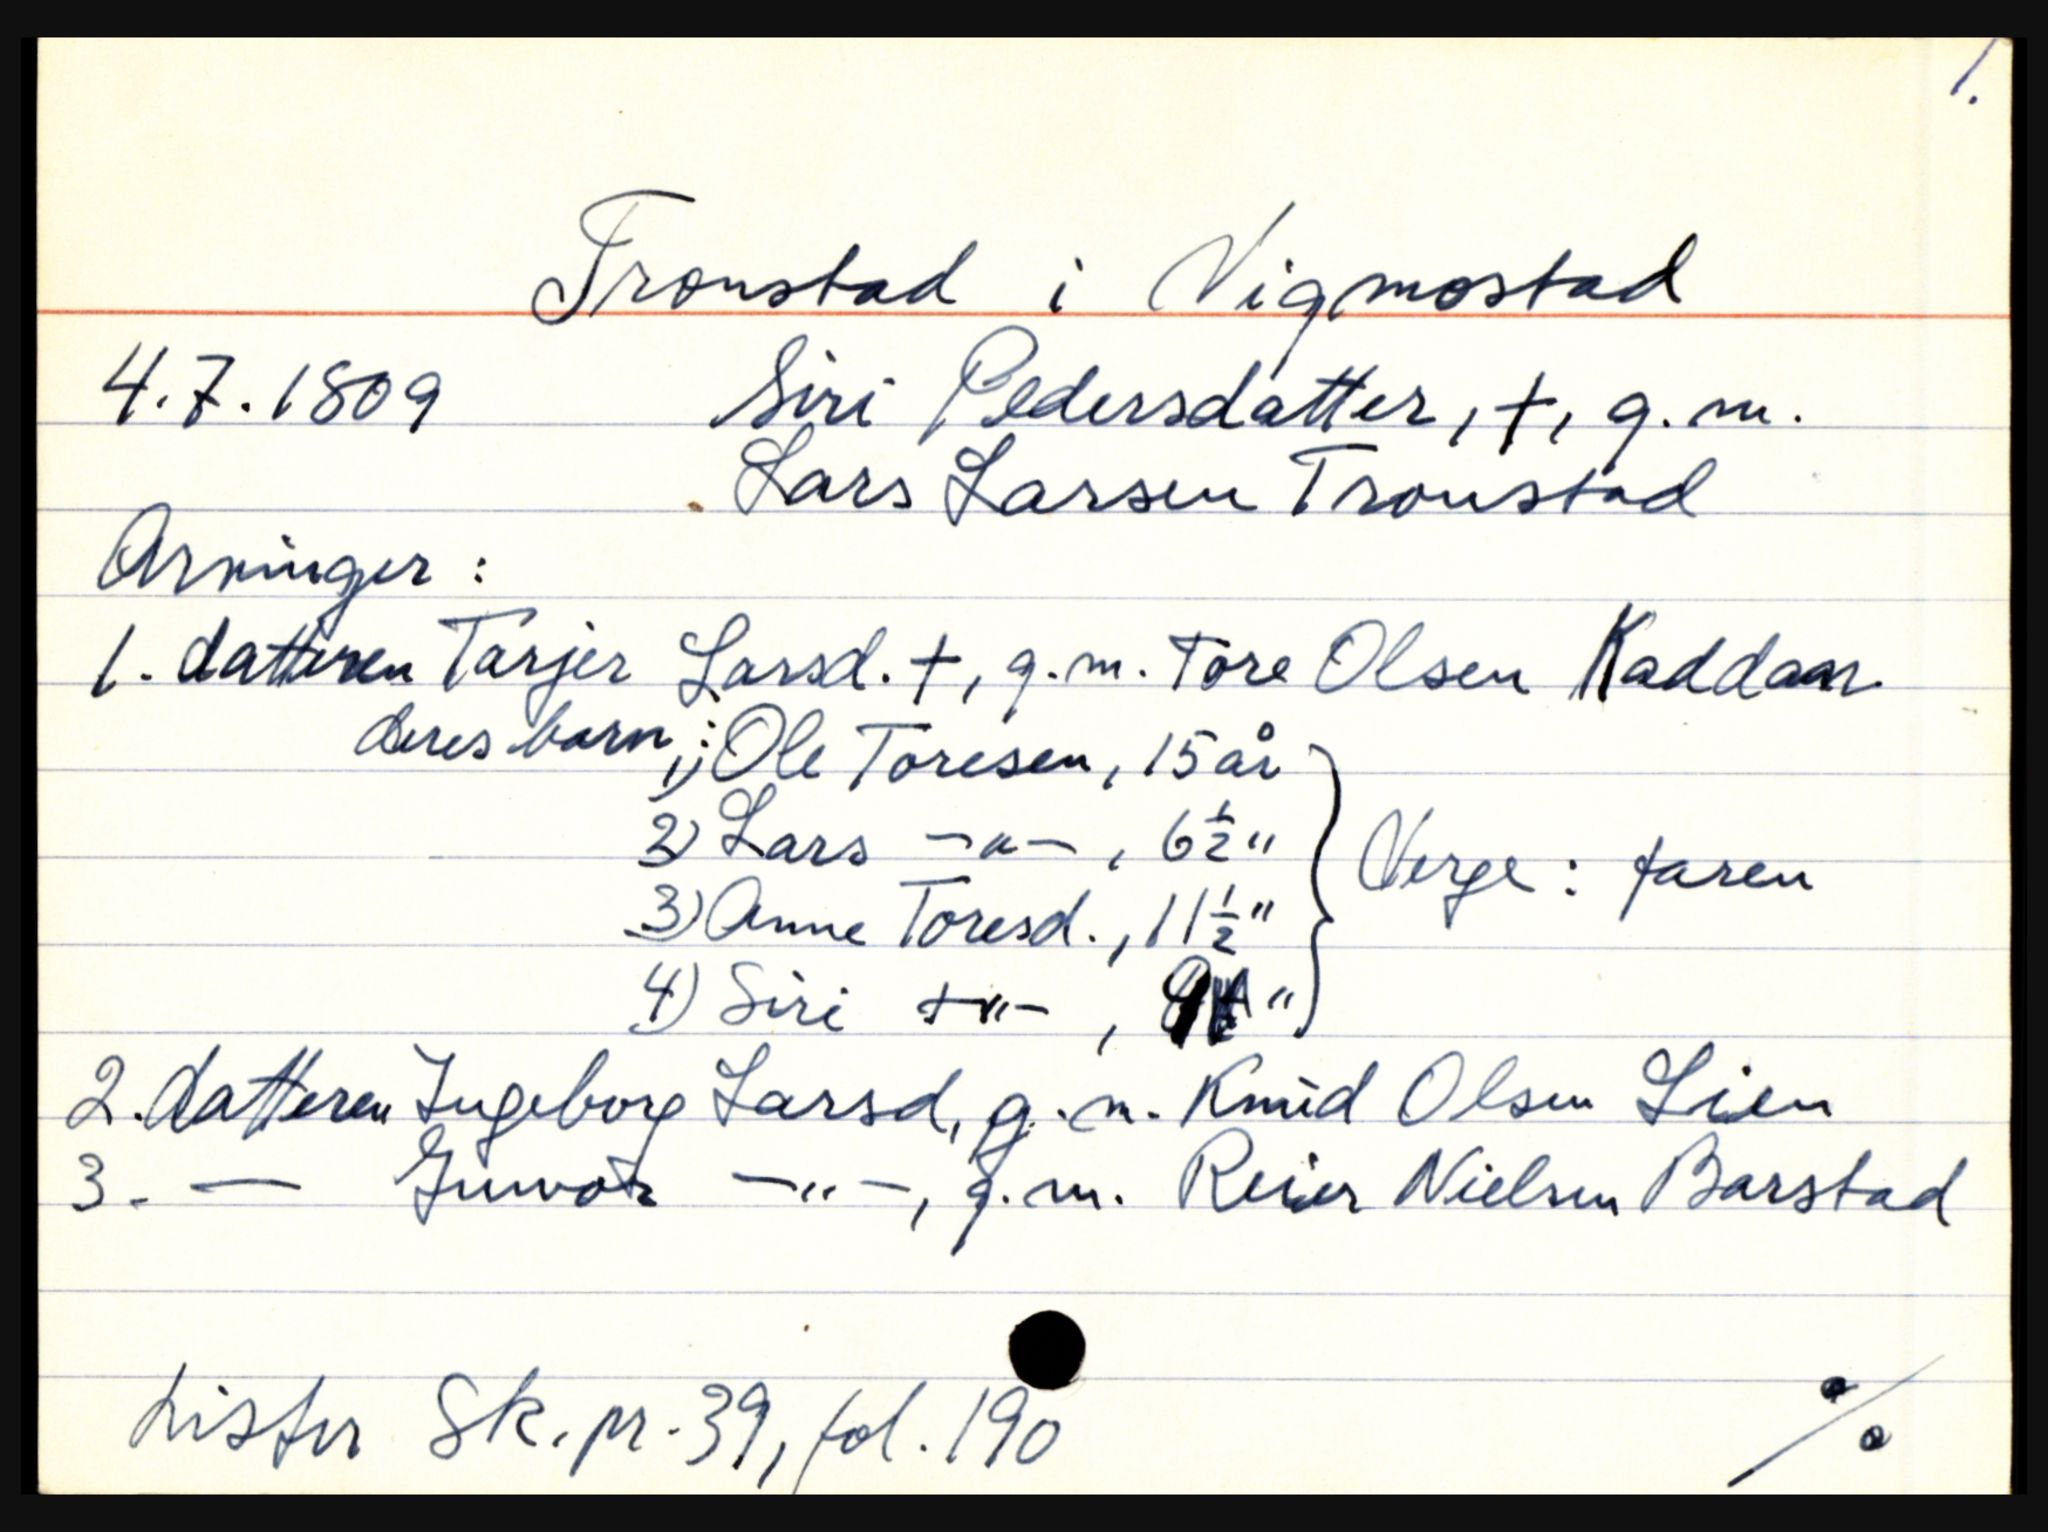 1.
Tronstad i Vigmostad
4.7.1809 Siri Pedersdatter, †, g.m.
Lars Larsen Tronstad
Arvinger:
1. datteren Tarjer Larsd. †, g.m. Tore Olsen Kaddan
deres barn: 1) Ole Toresen, 15 år
2) Lars —"—, 6½ "
3) Anne Toresd., 11½ "
Verge: faren
4) Siri —"—, "
2. datteren Ingeborg Larsd, g.m. Knud Olsen Lien
3. — Gunvor —"—, g.m. Reier Nielsen Barstad
Lister Sk.pr. 39, fol. 190
%